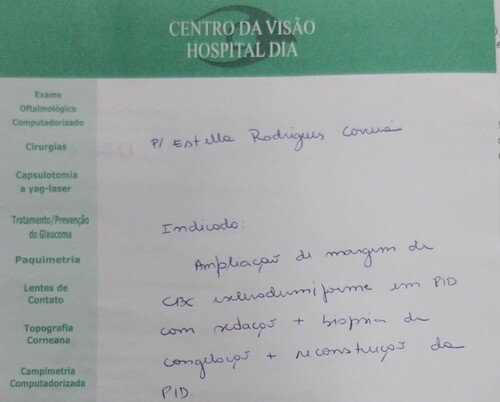 CENTRO DA VISÃO
HOSPITAL DIA
Exame
Oftalmológico
Computadorizado
Cirurgias
Capsulotomia
a yag-laser
Tratamento/Prevenção
do Glaucoma
Paquimetria
Lentes de
Contato
Topografia
Corneana
Campimetria
Computadorizada
P/ Estella Rodrigues
Indicado:
Ampliação de margem de
CBC esclerodermiforme em PID
com sedação + biopsia de
congelação + reconstrução da
PID.